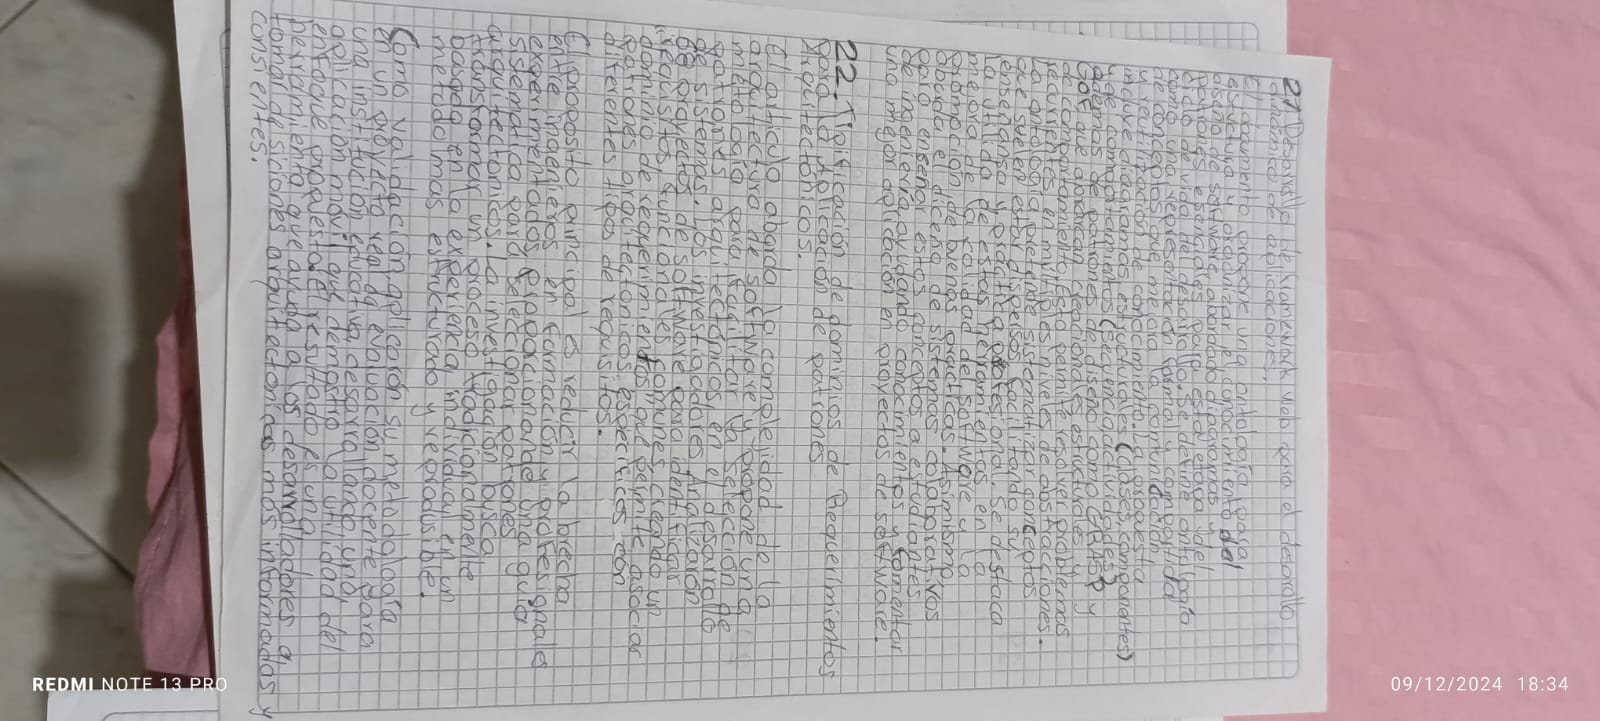 21) Desarrollo de framework web para el desarrollo
dinámico de aplicaciones.
El documento propone una ontología para
estructurar y organizar el conocimiento del
diseño de software, abordado diagramas y
patrones esenciales para esta etapa del
ciclo de vida de desarrollo. Se define ontología
como una representación formal y compartida
de conceptos que mejora la comunicación
y reutilización de conocimiento. La propuesta
incluye diagramas estructurales (clases, componentes)
y de comportamientos (secuencia, actividades),
además de patrones de diseño como GRASP y
GOF, que abordan responsabilidades, estructuras
de comportamiento. Esto permite resolver problemas
recurrentes en múltiples niveles de abstracciones.
La ontología pretende sistematizar conceptos
que suelen estar dispersos, facilitando su
enseñanza y práctica profesional. Se destaca
la utilidad de estas herramientas en la
mejora de la calidad del software y la
promoción de buenas prácticas. Asimismo,
aborda el diseño de sistemas colaborativos
para enseñar estos conceptos a estudiantes
de ingeniería, ayudando conocimientos y fomentar
una mejor aplicación en proyectos de software.
22. Tipificación de dominios de Requerimientos
para la aplicación de patrones
Arquitectónicos.
El artículo aborda la complejidad de la
arquitectura de software y propone una
metodología para facilitar la selección de
patrones arquitectónicos en el desarrollo
de sistemas. Los investigadores analizaron
68 proyectos de software para identificar
requisitos funcionales comunes, creando un
dominio de requerimientos que permite asociar
patrones arquitectónicos específicos con
diferentes tipos de requisitos.
El proposito principal es reducir la brecha
entre ingenieros en formación y profesionales
experimentados, proporcionando una guía
sistemática para seleccionar patrones
arquitectónicos. La investigación busca
transformar un proceso tradicionalmente
basado en la experiencia individual en un
método mas estructurado y reproducible.
Como validación, aplicaron su metodología
en un proyecto real de evaluación docente para
una institución educativa, desarrollando una
aplicación móvil que demostró la utilidad del
enfoque propuesto. El resultado es una
herramienta que ayuda a los desarrolladores a
tomar decisiones arquitectónicas más informadas y
consientes.
REDMI NOTE 13 PRO
09/12/2024 18:34